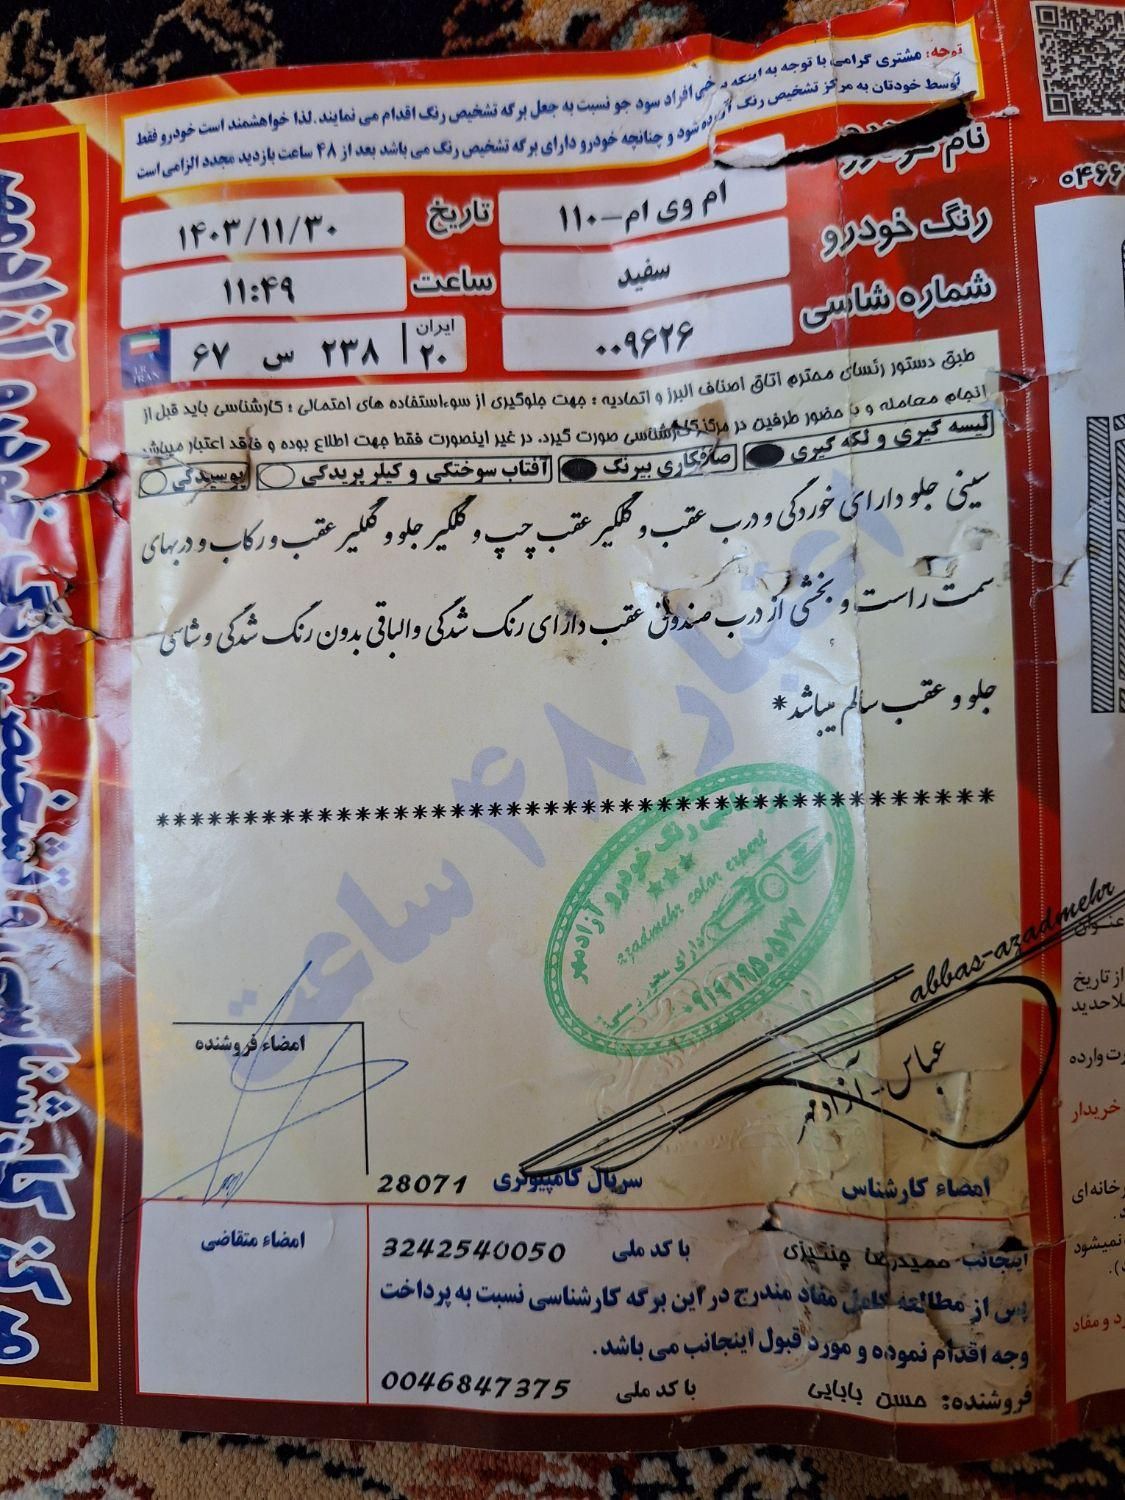 توجه: مشتری گرامی با توجه به اینکه برخی افراد سود جو نسبت به جعل برگه تشخیص رنگ اقدام می نمایند. لذا خواهشمند است خودرو فقط
توسط خودتان به مرکز تشخیص رنگ آورده شود و چنانچه خودرو دارای برگه تشخیص رنگ می باشد بعد از ۴۸ ساعت بازدید مجدد الزامی است
نام خودرو
ام وی ام-۱۱۰
تاریخ
۱۴۰۳/۱۱/۳۰
رنگ خودرو
سفید
ساعت
۱۱:۴۹
شماره شاسی
۰۰۹۶۲۶
ایران
۲۰
۲۳۸ س ۶۷
I.R.
IRAN
طبق دستور رئسای محترم اتاق اصناف البرز و اتحادیه ؛ جهت جلوگیری از سوءاستفاده های احتمالی ؛ کارشناسی باید قبل از
انجام معامله و با حضور طرفین در مرکز کارشناسی صورت گیرد. در غیر اینصورت فقط جهت اطلاع بوده و فاقد اعتبار میباشد
لیسه گیری و لکه گیری
صافکاری بیرنگ
آفتاب سوختگی و کیلر پریدگی
پوسیدگی
سینی جلو دارای خوردگی و درب عقب و گلگیر عقب چپ و گلگیر جلو و گلگیر عقب و رکاب و دربهای
سمت راست و بخشی از درب صندوق عقب دارای رنگ شدگی و الباقی بدون رنگ شدگی و شاسی
جلو و عقب سالم میباشد*
****************************************
اعتبار ۴۸ ساعت
رنگ خودرو آزادمهر
azadmehr color expert
دارای مجوز رسمی
۰۹۱۹۶۹۵۰۵۷۷
abbas-azadmehr
عباس-آزادمهر
امضاء فروشنده
امضاء کارشناس
سریال کامپیوتری
28071
امضاء متقاضی
اینجانب حمیدرضا چنگیزی با کد ملی 3242540050
پس از مطالعه کامل مفاد مندرج در این برگه کارشناسی نسبت به پرداخت
وجه اقدام نموده و مورد قبول اینجانب می باشد.
فروشنده: حسن بابایی با کد ملی 0046847375
مرکز کارشناسی و تشخیص رنگ خودرو آزادمهر
۰۴۶۶
عنوان
از تاریخ
خریدار
نمیشود
د و مفاد